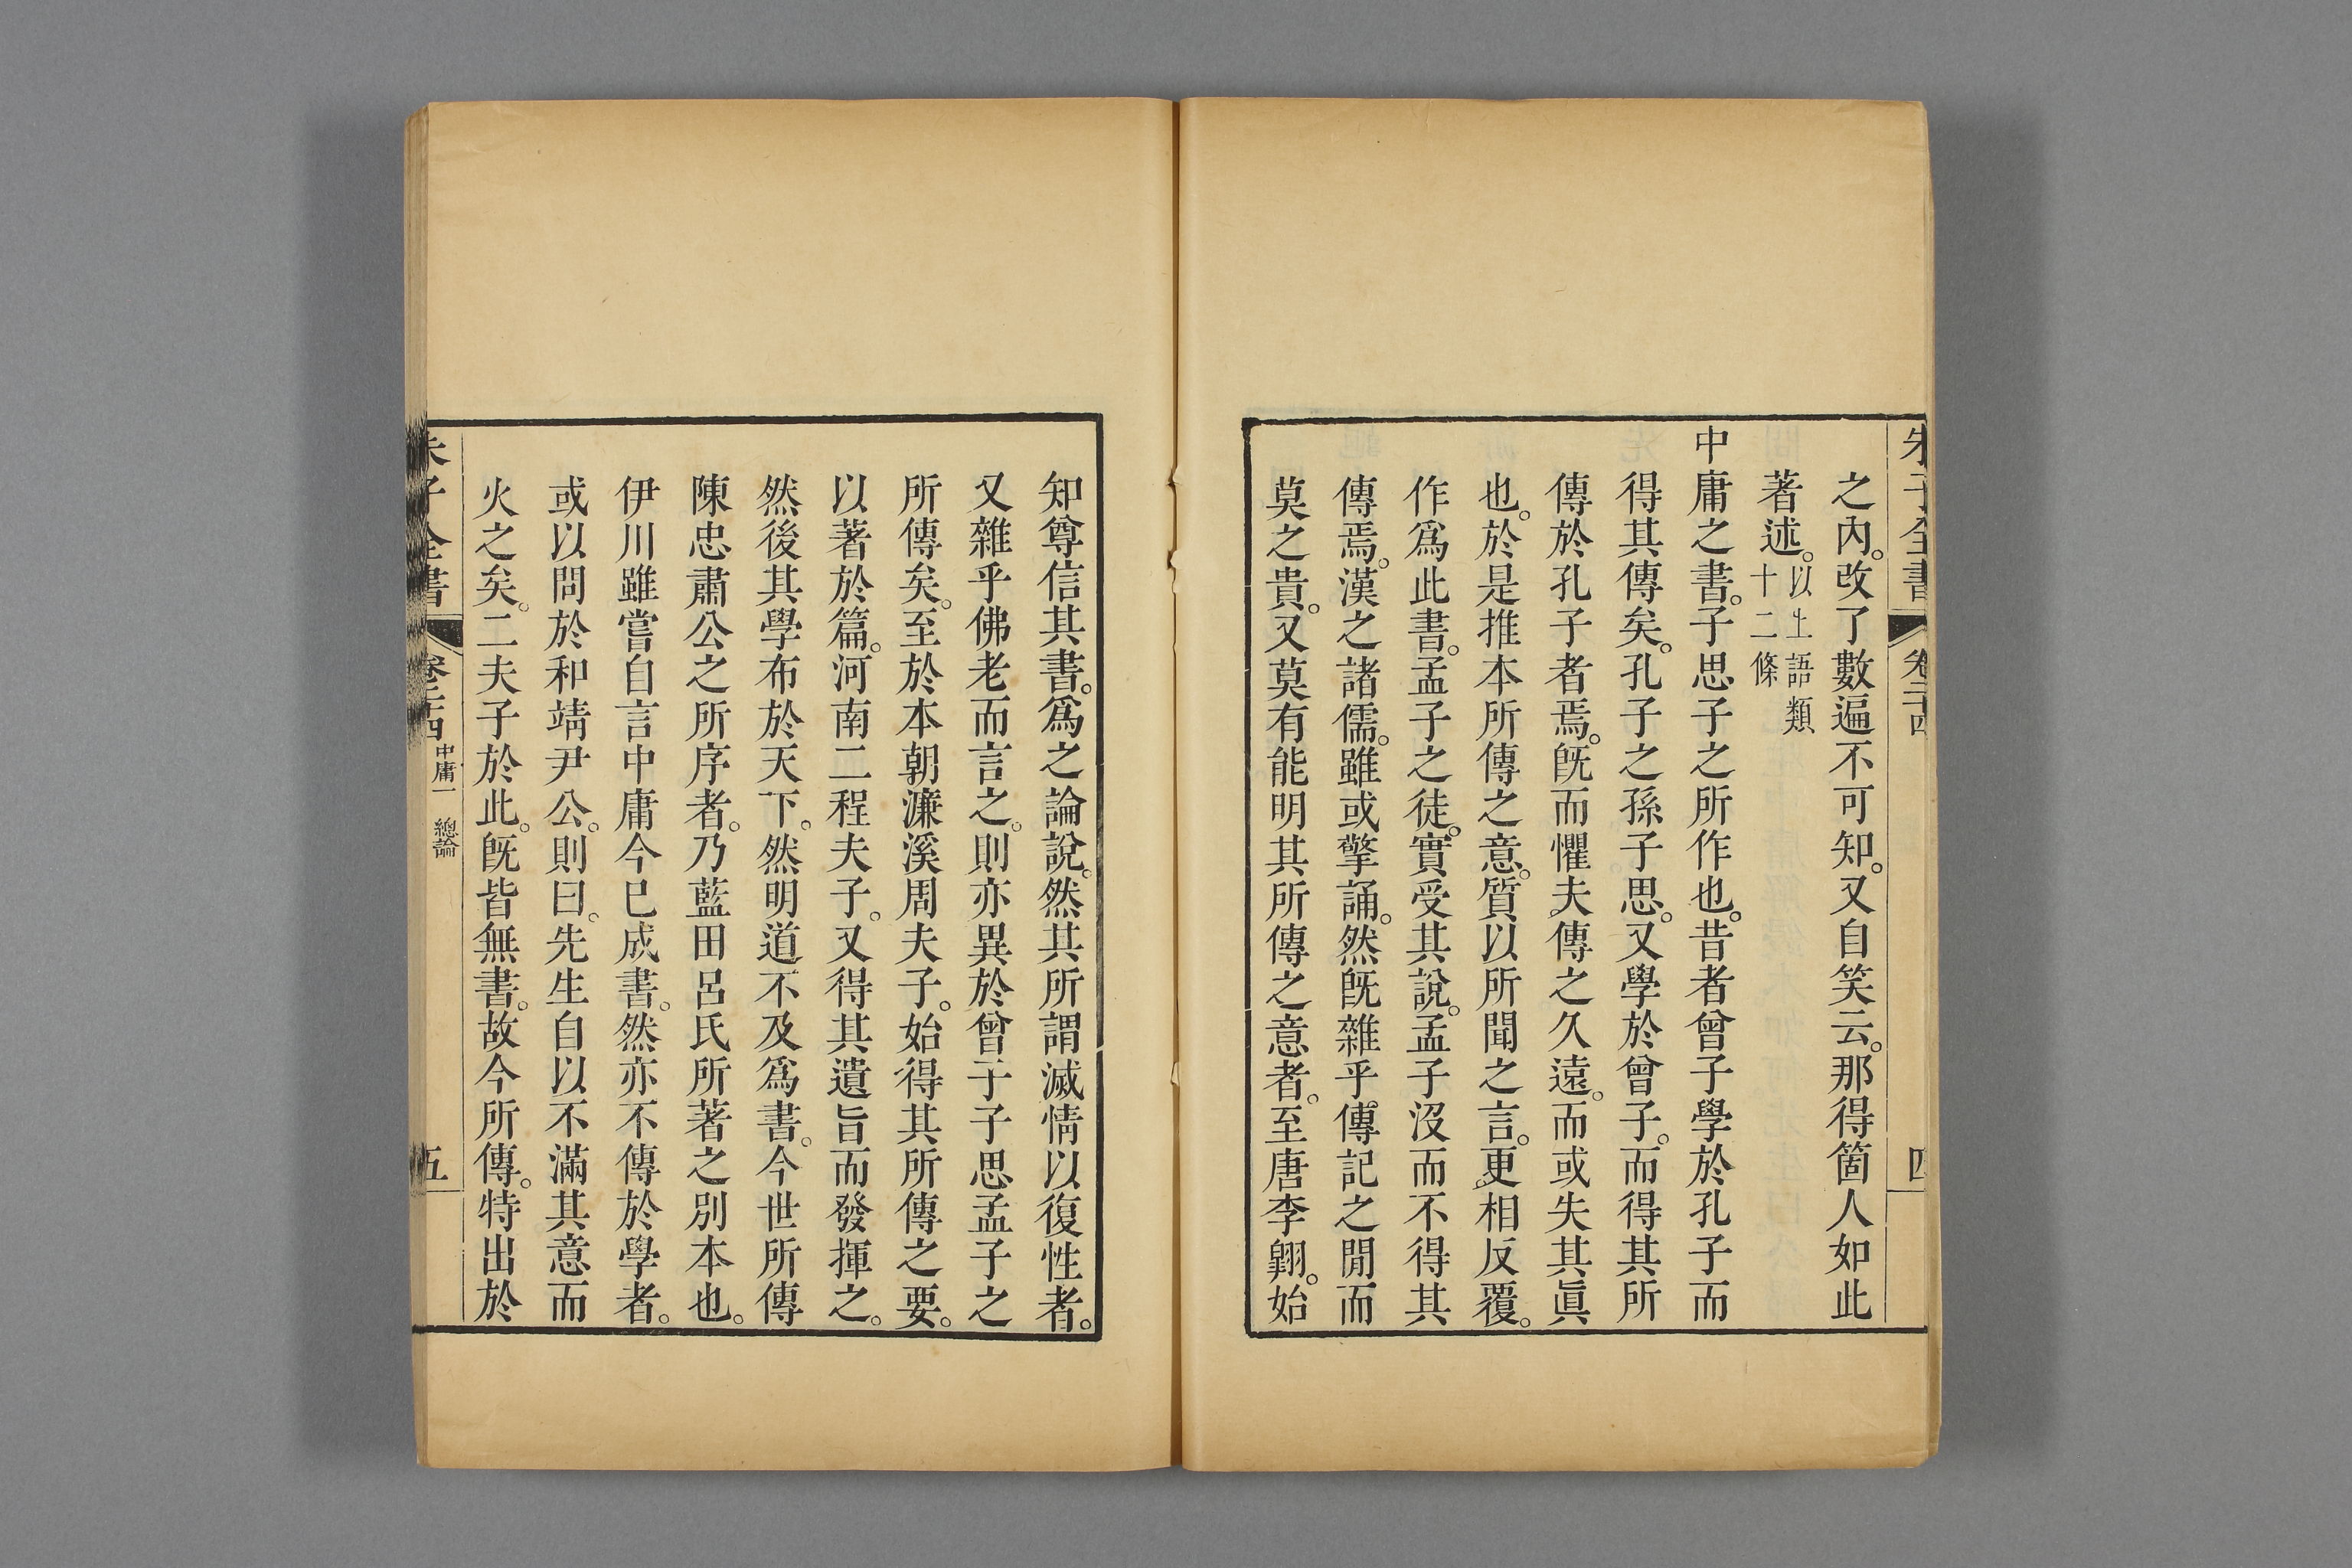 朱子全書 卷二十四 四
之內。改了數遍不可知。又自笑云。那得箇人如此
著述。以上語類十二條
中庸之書。子思子之所作也。昔者曾子學於孔子而
得其傳矣。孔子之孫子思。又學於曾子。而得其所
傳於孔子者焉。旣而懼夫傳之久遠。而或失其眞
也。於是推本所傳之意。質以所聞之言。更相反覆。
作爲此書。孟子之徒。實受其說。孟子沒而不得其
傳焉。漢之諸儒。雖或擎誦。然旣雜乎傳記之閒而
莫之貴。又莫有能明其所傳之意者。至唐李翺。始
知尊信其書。爲之論說。然其所謂滅情以復性者。
又雜乎佛老而言之。則亦異於曾子子思孟子之
所傳矣。至於本朝濂溪周夫子。始得其所傳之要。
以著於篇。河南二程夫子。又得其遺旨而發揮之。
然後其學布於天下。然明道不及爲書。今世所傳
陳忠肅公之所序者。乃藍田呂氏所著之別本也。
伊川雖嘗自言中庸今已成書。然亦不傳於學者。
或以問於和靖尹公。則曰。先生自以不滿其意而
火之矣。二夫子於此。旣皆無書。故今所傳。特出於
朱子全書 卷二十四 中庸一 總論 五